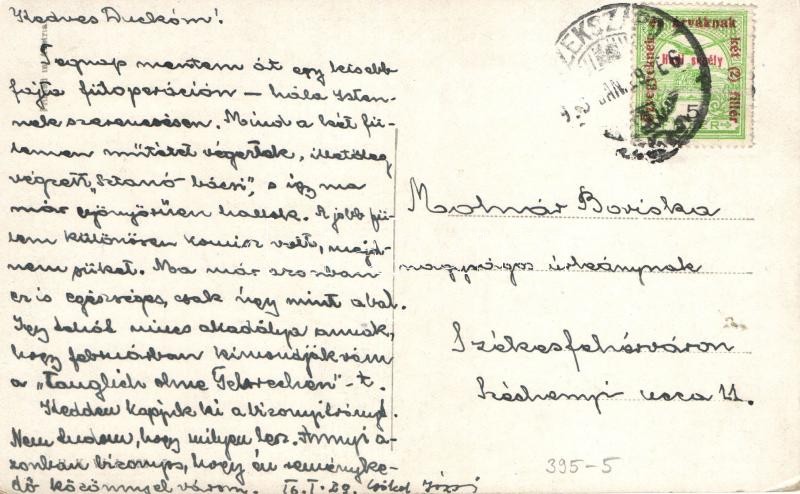 Kedves Duckóm!
Tegnap mentem át egy kisebb
fajta füloperáción – hála Isten-
nek szerencsésen. Mind a két fü-
lemen műtétet végeztek, illetőleg
végzett "Sztanó bácsi", s így ma
már gyönyörűen hallok. A jobb fü-
lem különösen komisz volt, majd-
nem süket. Ma már azonban
ez is egészséges, csak úgy mint a bal.
Így tehát nincs akadálya annak,
hogy februárban kimondják rám
a "Tauglich ohne Gebrechen"-t.
Kedden kapjuk ki a bizonyítványt.
Nem tudom, hogy milyen lesz. Annyi a-
zonban bizonyos, hogy én reményke-
dő közönnyel várom. 16. I. 29.
Józsi
SZEKSZÁRD
JAN. 29
özvegyeknek és árváknak két (2) fillér
Hadi segély
5
Molnár Boriska
nagyságos úrleánynak
Székesfehérváron
Széchenyi ucca 11.
395-5